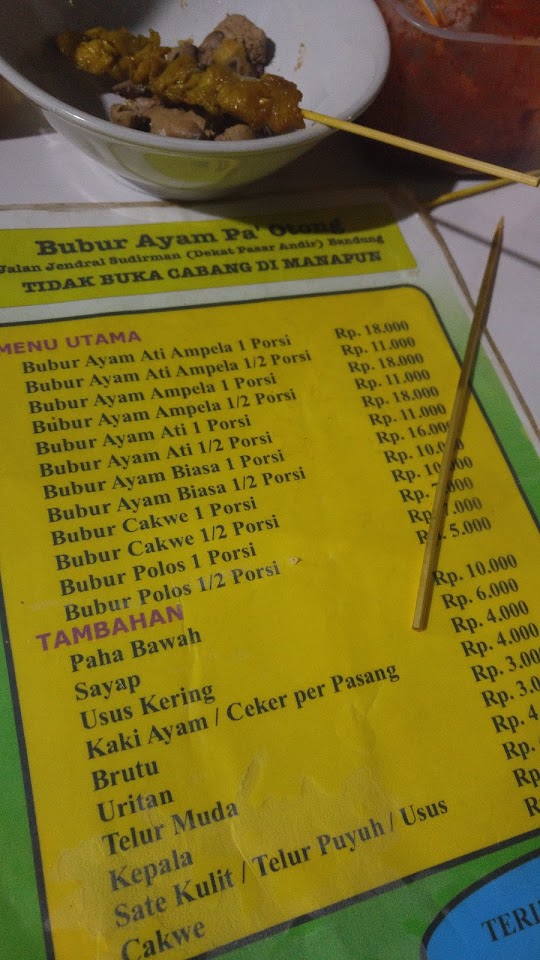 Bubur Ayam Pa' Otong
Jalan Jendral Sudirman (Dekat Pasar Andir) Bandung
TIDAK BUKA CABANG DI MANAPUN
MENU UTAMA
Bubur Ayam Ati Ampela 1 Porsi Rp. 18.000
Bubur Ayam Ati Ampela 1/2 Porsi Rp. 11.000
Bubur Ayam Ampela 1 Porsi Rp. 18.000
Bubur Ayam Ampela 1/2 Porsi Rp. 11.000
Bubur Ayam Ati 1 Porsi Rp. 18.000
Bubur Ayam Ati 1/2 Porsi Rp. 11.000
Bubur Ayam Biasa 1 Porsi Rp. 16.000
Bubur Ayam Biasa 1/2 Porsi Rp. 10.000
Bubur Cakwe 1 Porsi Rp. 10.000
Bubur Cakwe 1/2 Porsi Rp. 7.000
Bubur Polos 1 Porsi Rp. 7.000
Bubur Polos 1/2 Porsi Rp. 5.000
TAMBAHAN
Paha Bawah Rp. 10.000
Sayap Rp. 6.000
Usus Kering Rp. 4.000
Kaki Ayam / Ceker per Pasang Rp. 4.000
Brutu Rp. 3.000
Uritan Rp. 3.0
Telur Muda Rp. 4
Kepala Rp.
Sate Kulit / Telur Puyuh / Usus Rp
Cakwe R
TERI